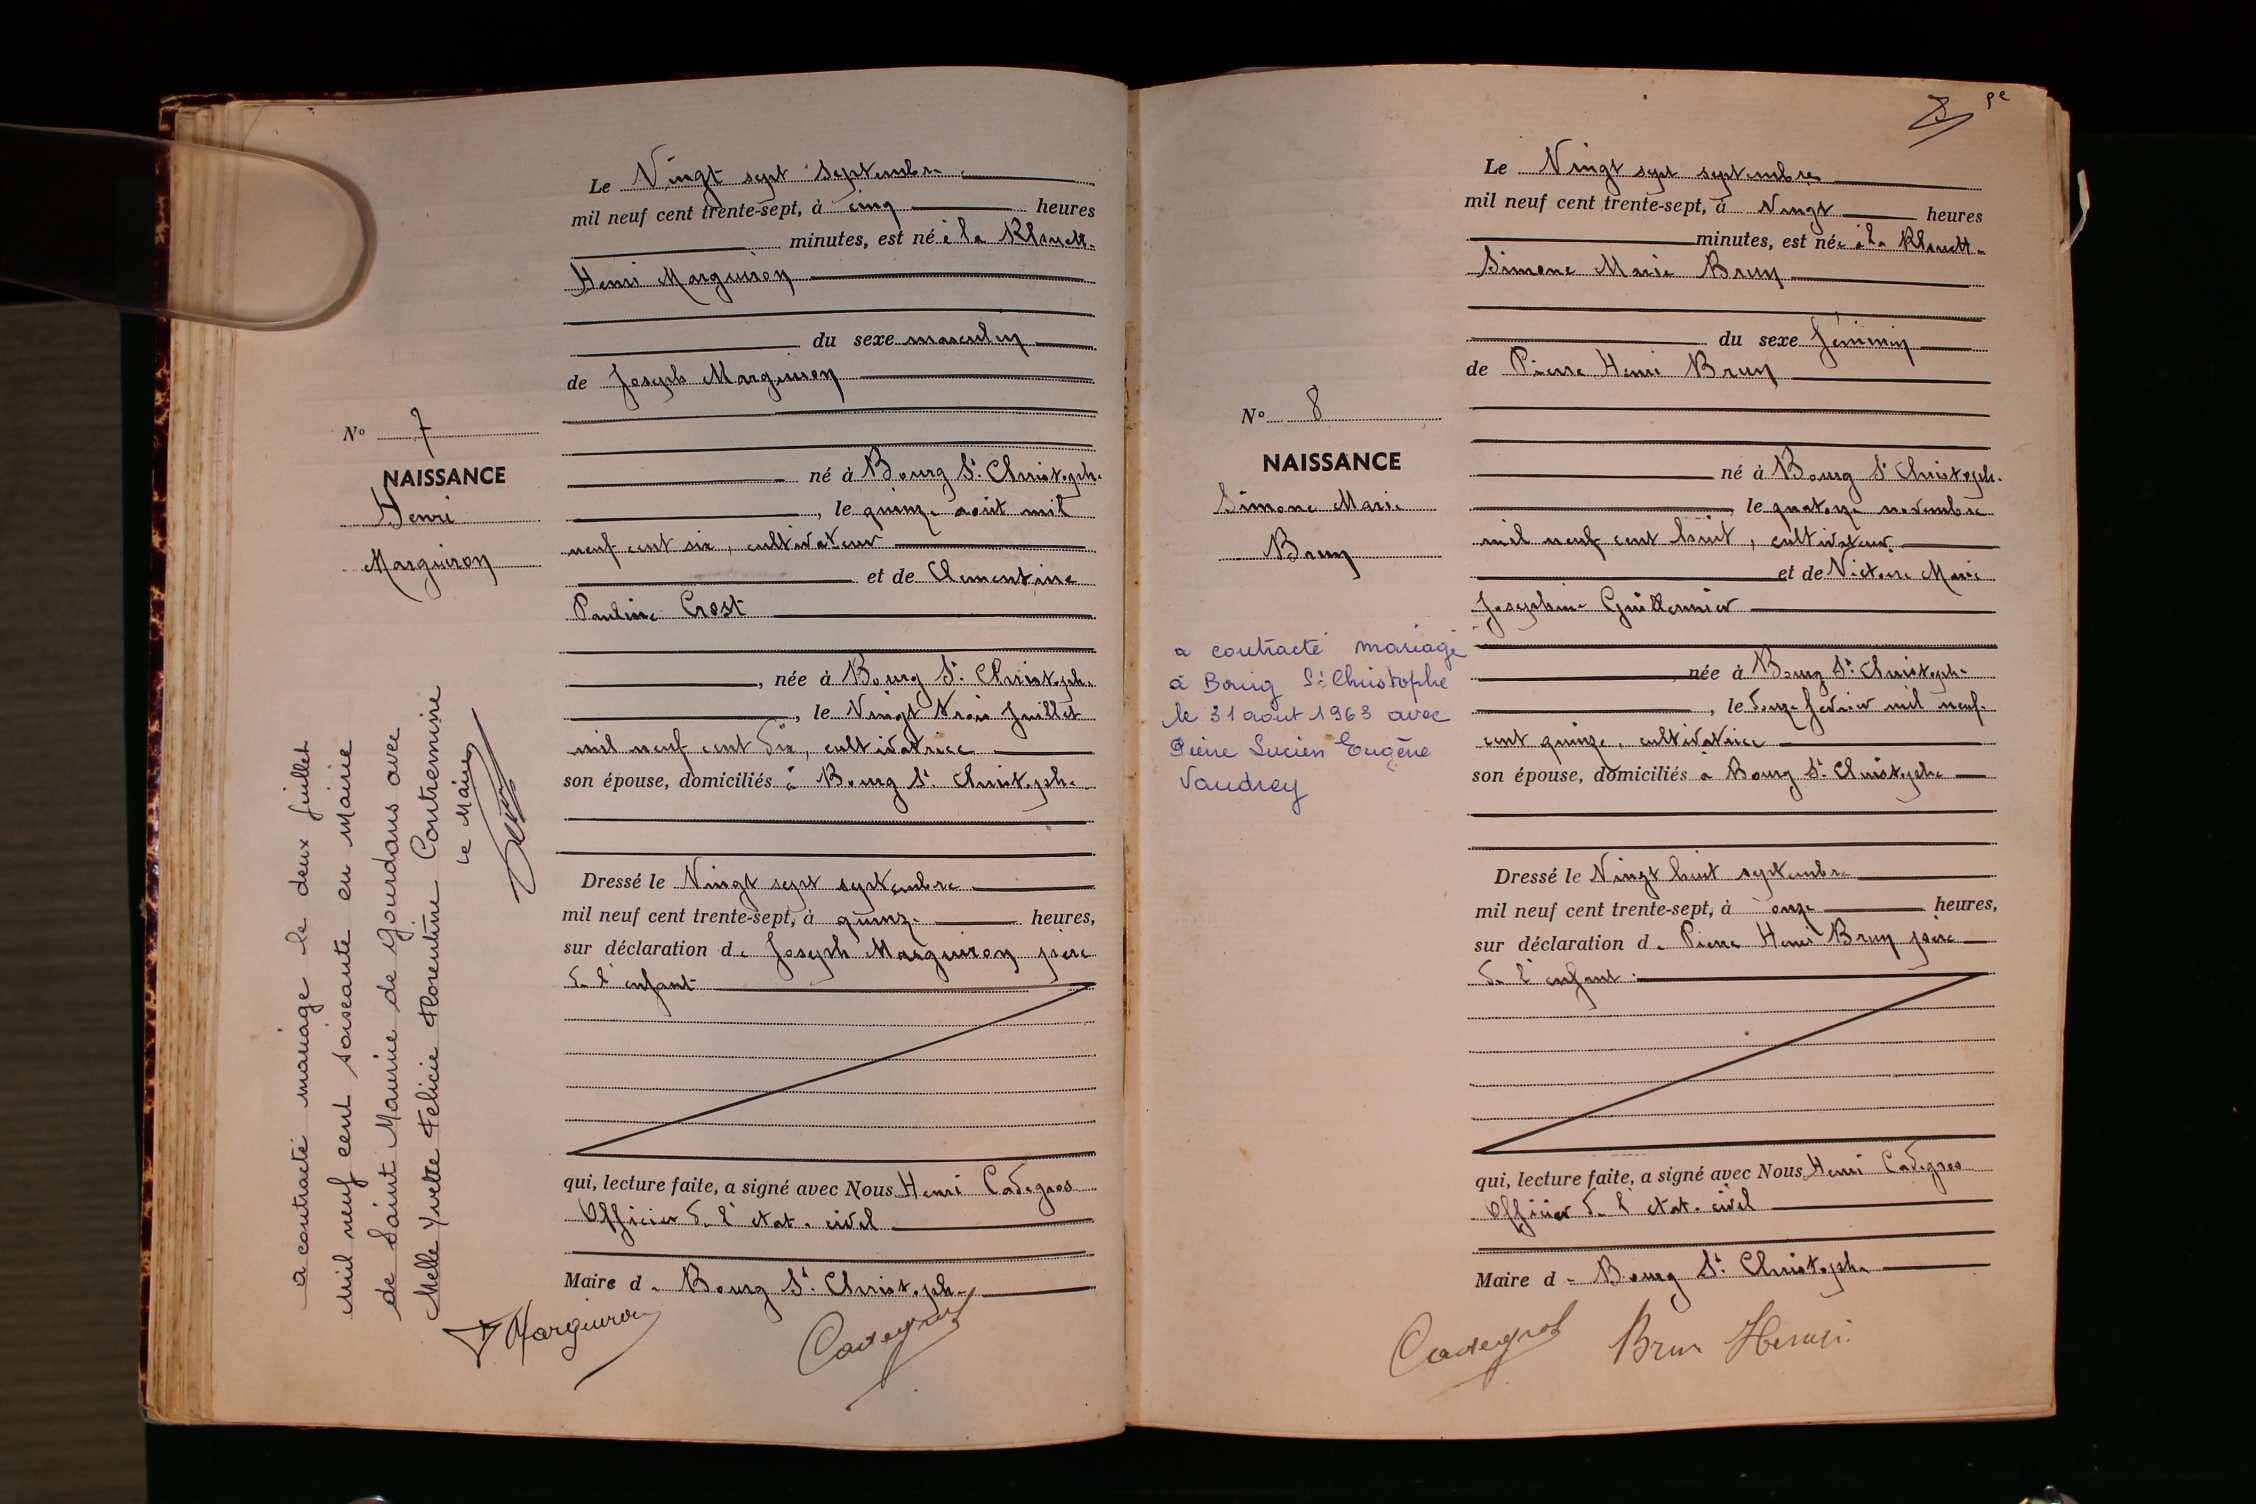 Le Vingt sept septembre
mil neuf cent trente-sept, à cinq heures
minutes, est né à la
Henri Marguiron
du sexe masculin
de Joseph Marguiron
N° 7
NAISSANCE
Henri
Marguiron
né à Bourg St. Christophe
, le quinze août mil
neuf cent six, cultivateur
et de Clementine
Pauline Crost
, née à Bourg St. Christophe
, le Vingt trois Juillet
mil neuf cent dix, cultivatrice
son épouse, domiciliés à Bourg St. Christophe
Dressé le Vingt sept septembre
mil neuf cent trente-sept, à quinze heures,
sur déclaration de Joseph Marguiron père
de l'enfant
qui, lecture faite, a signé avec Nous Henri Cadegros
Officier de l'etat-civil
Maire de Bourg St. Christophe
Marguiron
Cadegros
a contracté mariage le deux juillet
mil neuf cent soixante en mairie
de Saint Maurice de Gourdans avec
Melle Yvette Felicie Florentine Contremine
Le Maire
8
Le Vingt sept septembre
mil neuf cent trente-sept, à Vingt heures
minutes, est née à la
Simone Marie Brun
du sexe féminin
de Pierre Henri Brun
N° 8
NAISSANCE
Simone Marie
Brun
né à Bourg St Christophe
, le quatorze novembre
mil neuf cent huit, cultivateur
et de Victorine Marie
Josephine Guillermier
née à Bourg St. Christophe
, le douze février mil neuf
cent quinze, cultivatrice
son épouse, domiciliés à Bourg St. Christophe
a contracté mariage
à Bourg St Christophe
le 31 août 1963 avec
Pierre Lucien Eugène
Vaudrey
Dressé le Vingt huit septembre
mil neuf cent trente-sept, à onze heures,
sur déclaration de Pierre Henri Brun père
de l'enfant.
qui, lecture faite, a signé avec Nous Henri Cadegros
Officier de l'etat-civil
Maire de Bourg St. Christophe
Cadegros Brun Henri